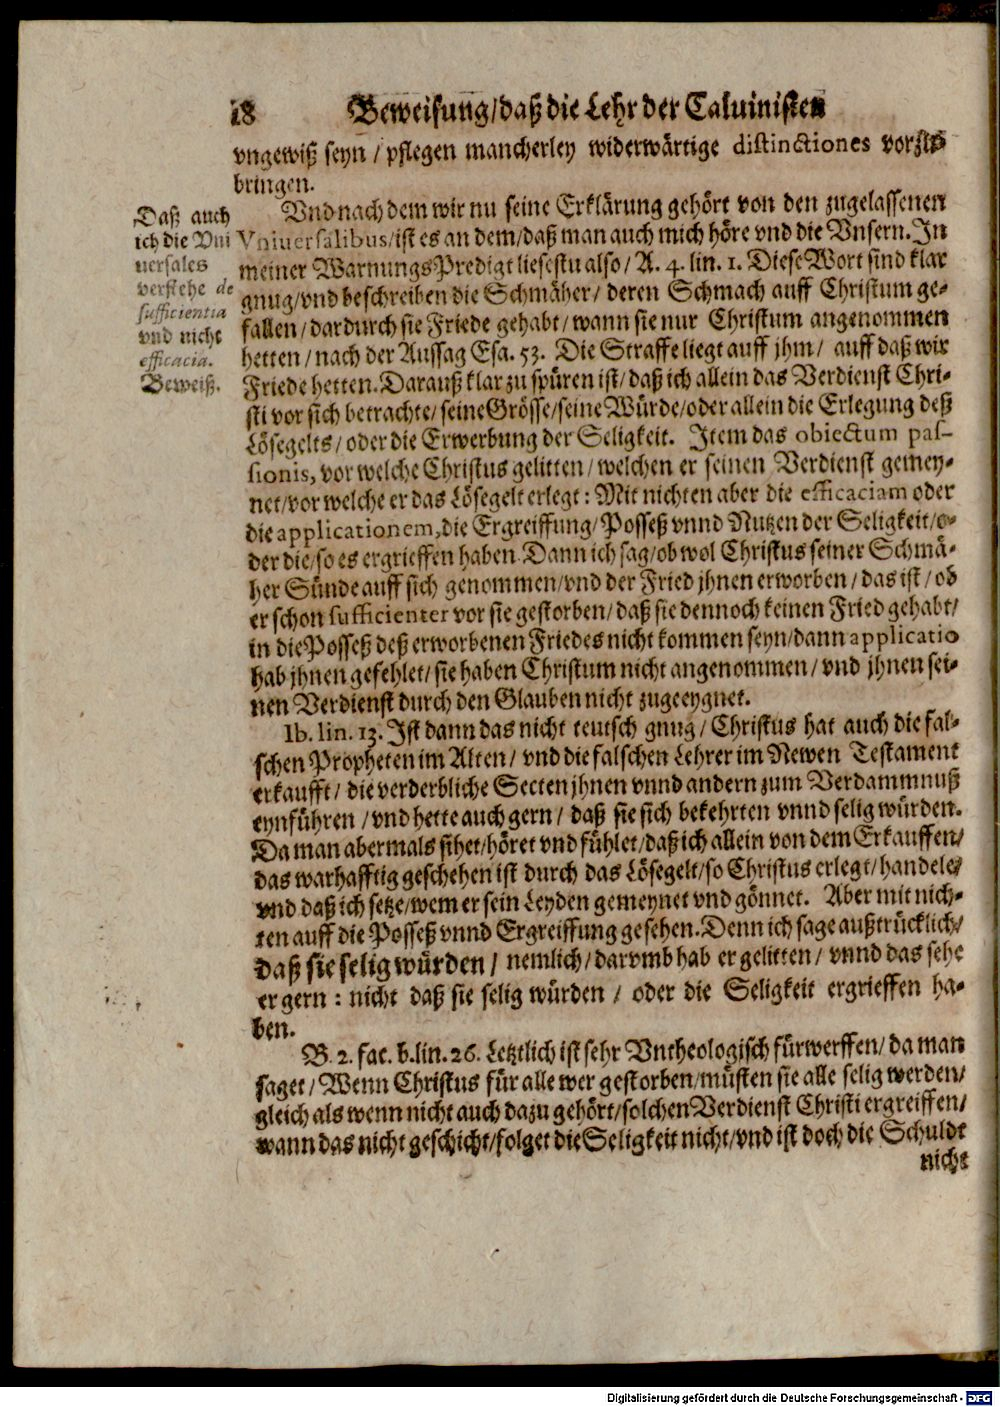 18 Beweisung/daß die Lehr der Caluinisten
vngewiß seyn / pflegen mancherley widerwärtige distinctiones vorzu
bringen.
Daß auch
ich die Vni
uersales
verstehe de
sufficientia
vnd nicht
efficacia.
Beweiß.
Vnd nach dem wir nu seine Erklärung gehört von den zugelassenen
Vniuersalibus/ist es an dem/daß man auch mich höre vnd die Vnsern. In
meiner WarnungsPredigt liesestu also / A. 4. lin. 1. Diese Wort sind klar
gnug/vnd beschreiben die Schmäher/ deren Schmach auff Christum ge-
fallen / dardurch sie Friede gehabt / wann sie nur Christum angenommen
hetten / nach der Aussag Esa. 53. Die Straffe liegt auff jhm / auff daß wir
Friede hetten. Darauß klar zu spüren ist/ daß ich allein das Verdienst Chri-
sti vor sich betrachte/ seine Grösse/seine Würde/oder allein die Erlegung deß
Lösegelts / oder die Erwerbung der Seligkeit. Item das obiectum pas-
sionis, vor welche Christus gelitten / welchen er seinen Verdienst gemey-
net/vor welche er das Lösegelt erlegt : Mit nichten aber die efficaciam oder
die applicationem, die Ergreiffung/ Posseß vnnd Nutzen der Seligkeit/o-
der die/so es ergrieffen haben. Dann ich sag/ob wol Christus seiner Schmä-
her Sünde auff sich genommen/vnd der Fried jhnen erworben / das ist / ob
er schon sufficienter vor sie gestorben/ daß sie dennoch keinen Fried gehabt/
in die Posseß deß erworbenen Friedes nicht kommen seyn/dann applicatio
hab jhnen gefehlet/ sie haben Christum nicht angenommen / vnd jhnen sei-
nen Verdienst durch den Glauben nicht zugeeygnet.
Ib. lin. 13. Ist dann das nicht teutsch gnug / Christus hat auch die fal-
schen Propheten im Alten / vnd die falschen Lehrer im Newen Testament
erkaufft / die verderbliche Secten jhnen vnnd andern zum Verdammnuß
eynführen / vnd hette auch gern / daß sie sich bekehrten vnnd selig würden.
Da man abermals sihet/höret vnd fühlet/daß ich allein von dem Erkauffen/
das warhafftig geschehen ist durch das Lösegelt/ so Christus erlegt/ handele/
vnd daß ich setze/wem er sein Leyden gemeynet vnd gönnet. Aber mit nich-
ten auff die Posseß vnnd Ergreiffung gesehen. Denn ich sage außtrücklich/
daß sie selig würden / nemlich / darvmb hab er gelitten / vnnd das sehe
er gern : nicht daß sie selig würden / oder die Seligkeit ergrieffen ha-
ben.
B. 2. fac. b. lin. 26. Letztlich ist sehr Vntheologisch fürwerffen/ da man
saget / Wenn Christus für alle wer gestorben/müsten sie alle selig werden/
gleich als wenn nicht auch dazu gehört/solchen Verdienst Christi ergreiffen/
wann das nicht geschicht/folget die Seligkeit nicht/vnd ist doch die Schuldt
nicht
Digitalisierung gefördert durch die Deutsche Forschungsgemeinschaft - DFG